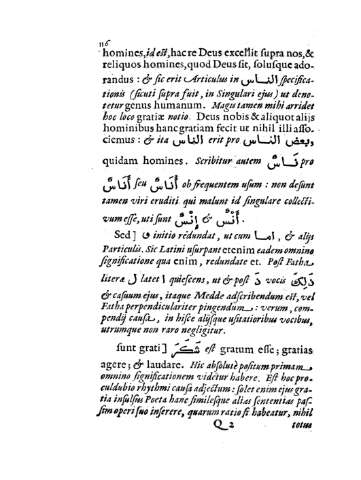 116
homines, id est, hac re Deus excellit supra nos, &
reliquos homines, quod Deus sit, solusque ado-
randus : & sic erit Articulus in الناس specifica-
tionis (sicuti supra fuit, in Singulari ejus) ut deno-
tetur genus humanum. Magis tamen mihi arridet
hoc loco gratiæ notio. Deus nobis & aliquot alijs
hominibus hanc gratiam fecit ut nihil illi asso-
ciemus : & ita الناس erit pro وبعض الناس
quidam homines. Scribitur autem نَاسٌ pro
أُنَاسٌ seu أُنَاسٌ ob frequentem usum : non desunt
tamen viri eruditi qui malunt id singulare collecti-
vum esse, uti sunt إِنْسٌ & أُنْسٌ .
Sed] و initio redundat, ut cum اما, & alijs
Particulis. Sic Latini usurpant etenim eadem omnino
significatione qua enim, redundate et. Post Fatha
literæ ذ latet ا quiescens, ut & post ذَ vocis ذَلِكَ
& casuum ejus, itaque Medde adscribendum est, vel
Fatha perpendiculariter pingendum : verum, com-
pendij causa, in hisce alijsque usitatioribus vocibus,
utrumque non raro negligitur.
sunt grati] شَكَرَ est gratum esse; gratias
agere; & laudare. Hic absolutè positum primam
omnino significationem videtur habere. Est hoc pro-
culdubio rhythmi causa adjectum : solet enim ejus gra-
tia insulsus Poeta hanc similesque alias sententias pas-
sim operi suo inserere, quarum ratio si habeatur, nihil
Q 2 totus